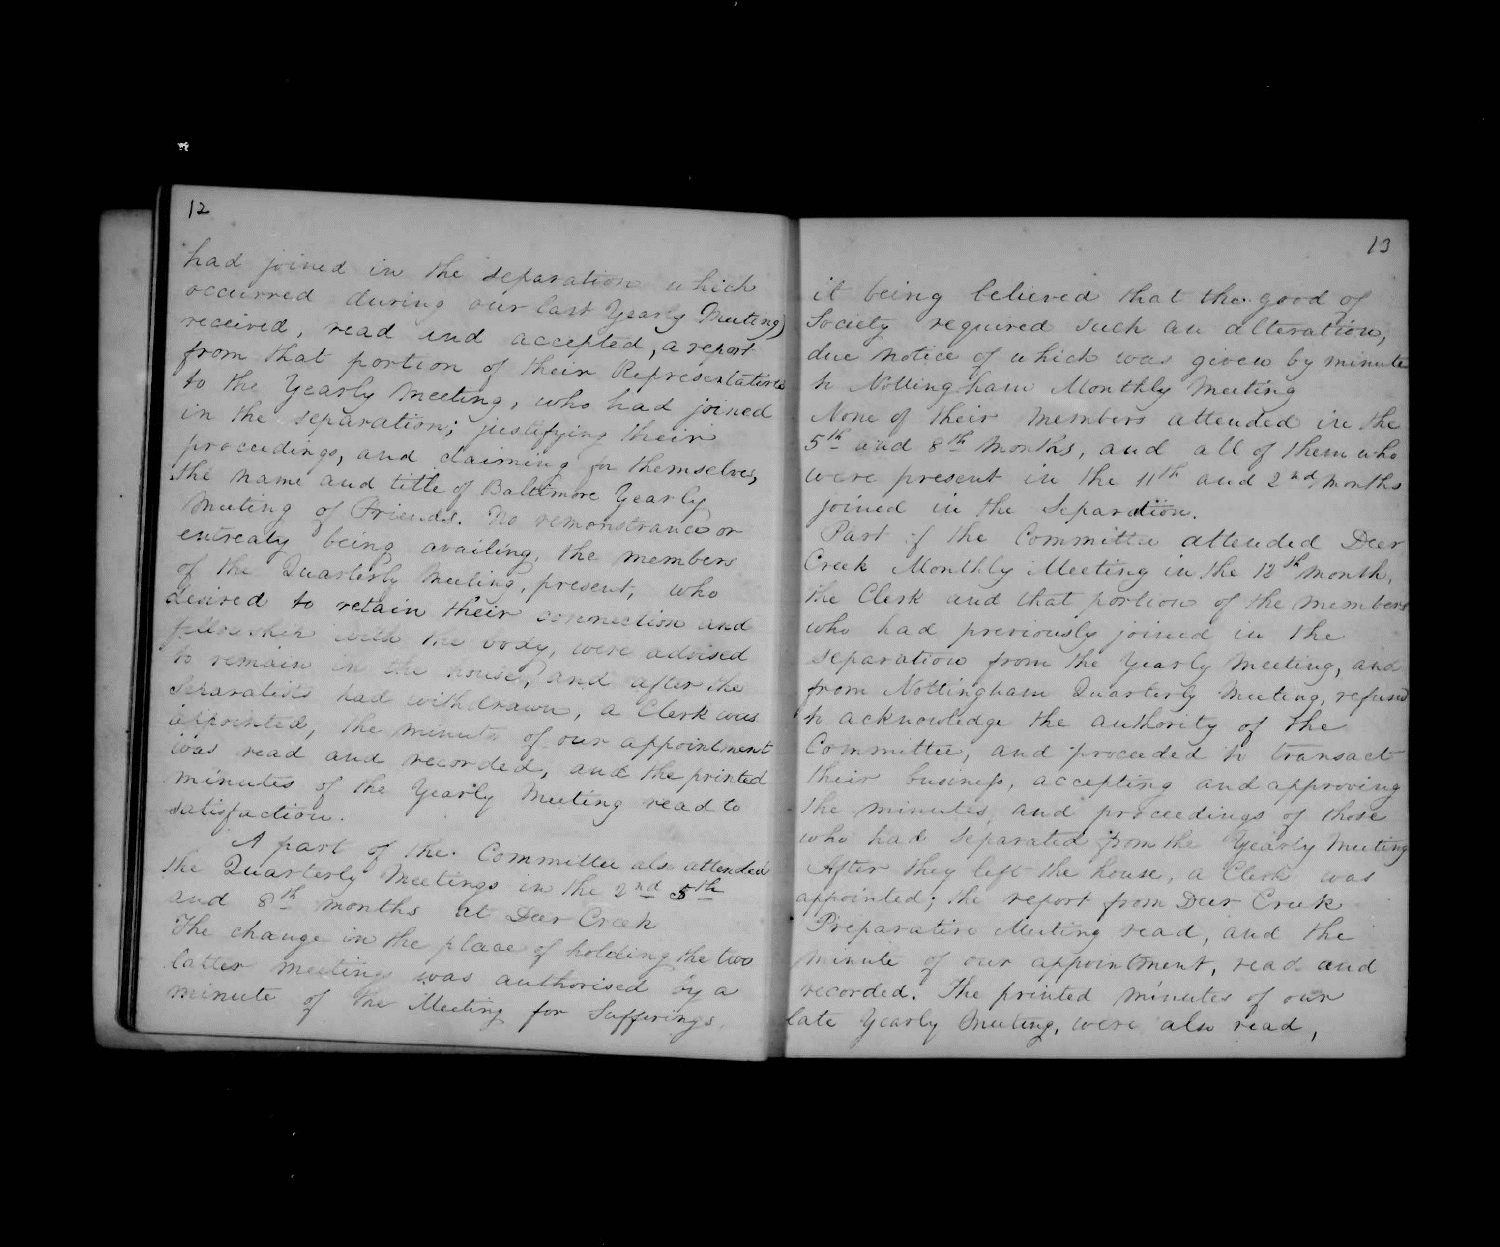 12
had joined in the separation which
occurred during our last Yearly Meeting)
received, read and accepted, a report
from that portion of their Representatives
to the Yearly Meeting, who had joined
in the separation; justifying their
proceedings, and claiming for themselves,
the name and title of Baltimore Yearly
Meeting of Friends. No remonstrance or
entreaty being availing, the members
of the Quarterly Meeting, present, who
desired to retain their connection and
fellowship with the body, were advised
to remain in the house, and after the
Separatists had withdrawn, a Clerk was
appointed, the minute of our appointment
was read and recorded, and the printed
minutes of the Yearly Meeting read to
satisfaction.
A part of the Committee also attended
the Quarterly Meetings in the 2nd 5th
and 8th months at Deer Creek
The change in the place of holding the two
latter meetings was authorised by a
minute of the Meeting for Sufferings,
13
it being believed that the good of
Society required such an alteration,
due notice of which was given by minute
to Nottingham Monthly Meeting
None of their members attended in the
5th and 8th Months, and all of them who
were present in the 11th and 2nd months
joined in the Separation.
Part of the Committee attended Deer
Creek Monthly Meeting in the 12th month,
the Clerk and that portion of the members
who had previously joined in the
separation from the Yearly Meeting, and
from Nottingham Quarterly Meeting, refused
to acknowledge the authority of the
Committee, and proceeded to transact
their business, accepting and approving
the minutes and proceedings of those
who had separated from the Yearly Meeting
After they left the house, a Clerk was
appointed; the report from Deer Creek
Preparative Meeting read, and the
minute of our appointment, read and
recorded. The printed minutes of our
late Yearly Meeting, were also read,